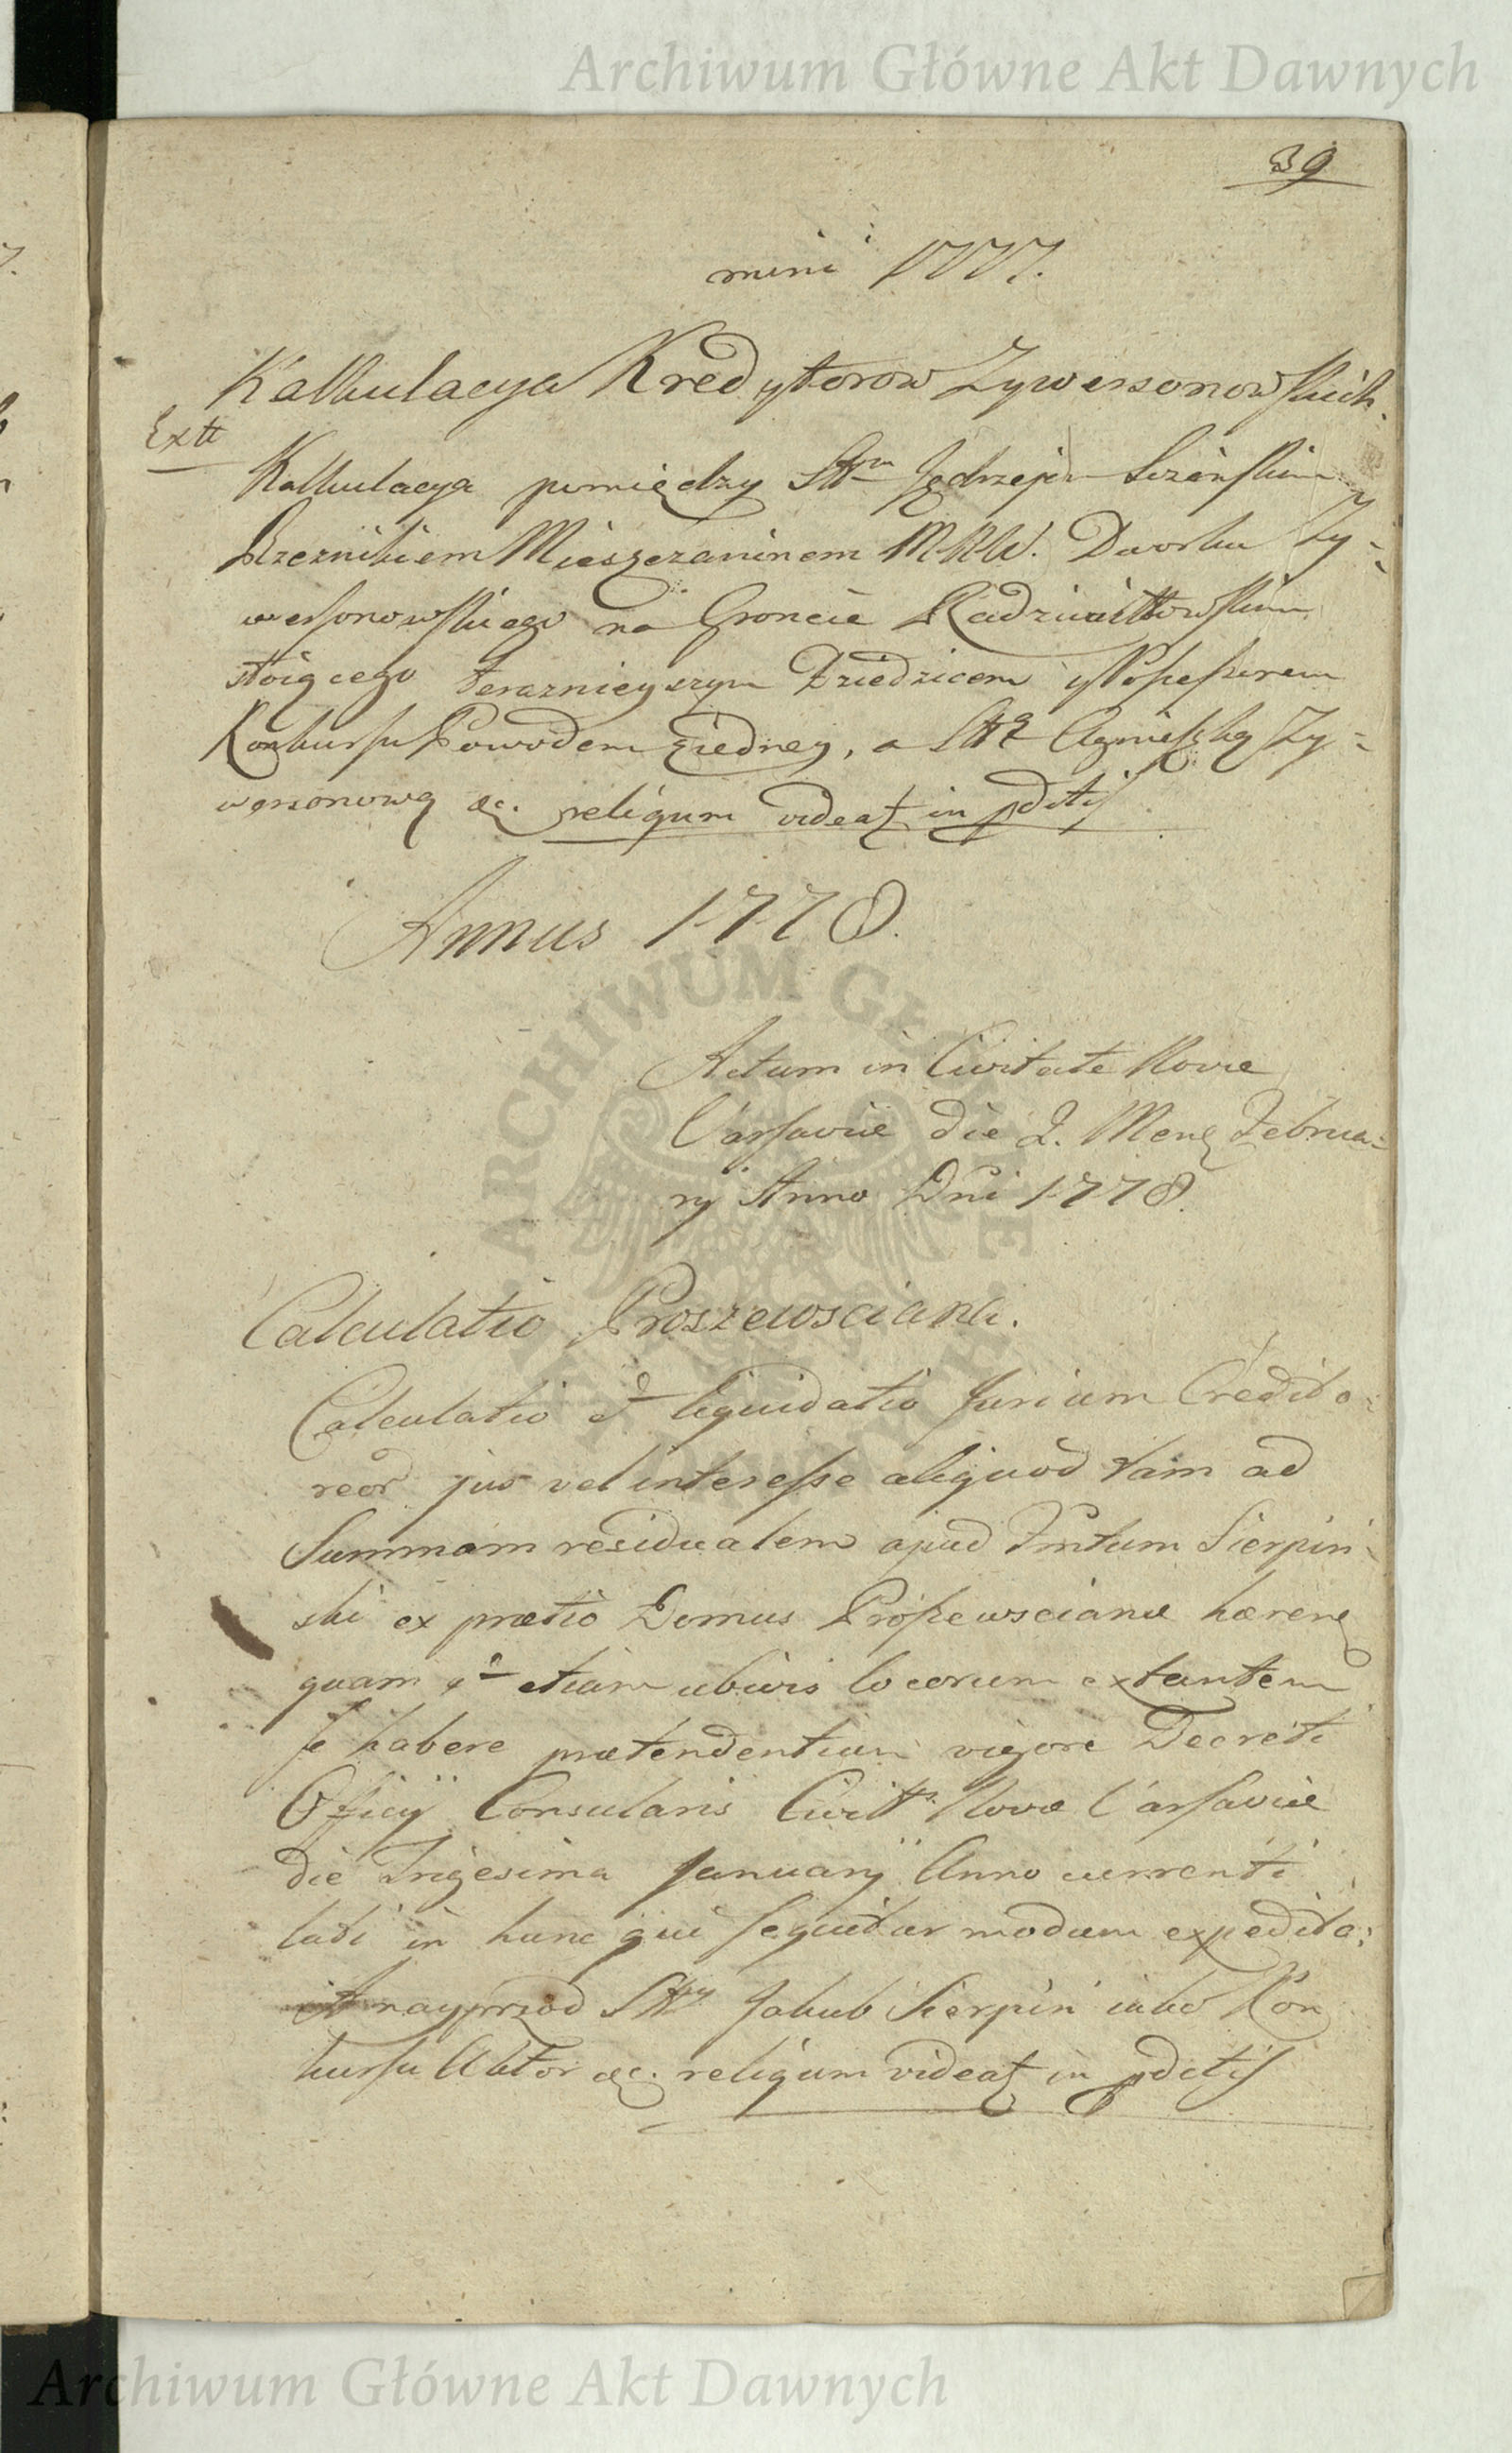 Archiwum Główne Akt Dawnych
39
mini 1777.
Kalkulacya Kredytorow Zywersonowskich.
Extt
Kalkulacya pomiędzy Sttm Jędrzejem
Rzeznikiem Mieszczaninem M.N.W. Dworku Zy=
wersonowskiego na Groncie Radziwiłłowskim
stoiącego teraznieyszym Dziedzicem y Possessorem
Konkursu Powodem z iedney, a Sttą Agnieszką Zy=
wersonową &c. reliqum videatz in pdctis
Annus 1778.
Actum in Civitate Nova
Varsaviæ die 2. Mens Februa=
rij Anno Dni 1778.
Calculatio Proszewsciana.
Calculatio et liquidatio Jurium Credito=
reor jus vel interesse aliquod tam ad
Summam residualem apud Fmtum Sierpin=
ski ex prætio Domus Proszewscianæ hæren
quam et etiam ubivis locorum extantem
se habere prætendentium vigore Decreti
Officij Consularis Civitts Novæ Varsaviæ
die Trigesima January Anno currenti
lati in hunc qui sequitur modum expedita:
A nayprzod Stty Jakub Sierpin iako Kon
kursu Aktor &c. reliqum videatz in pdctis
ARCHIWUM GŁÓWNE AKT DAWNYCH
Archiwum Główne Akt Dawnych